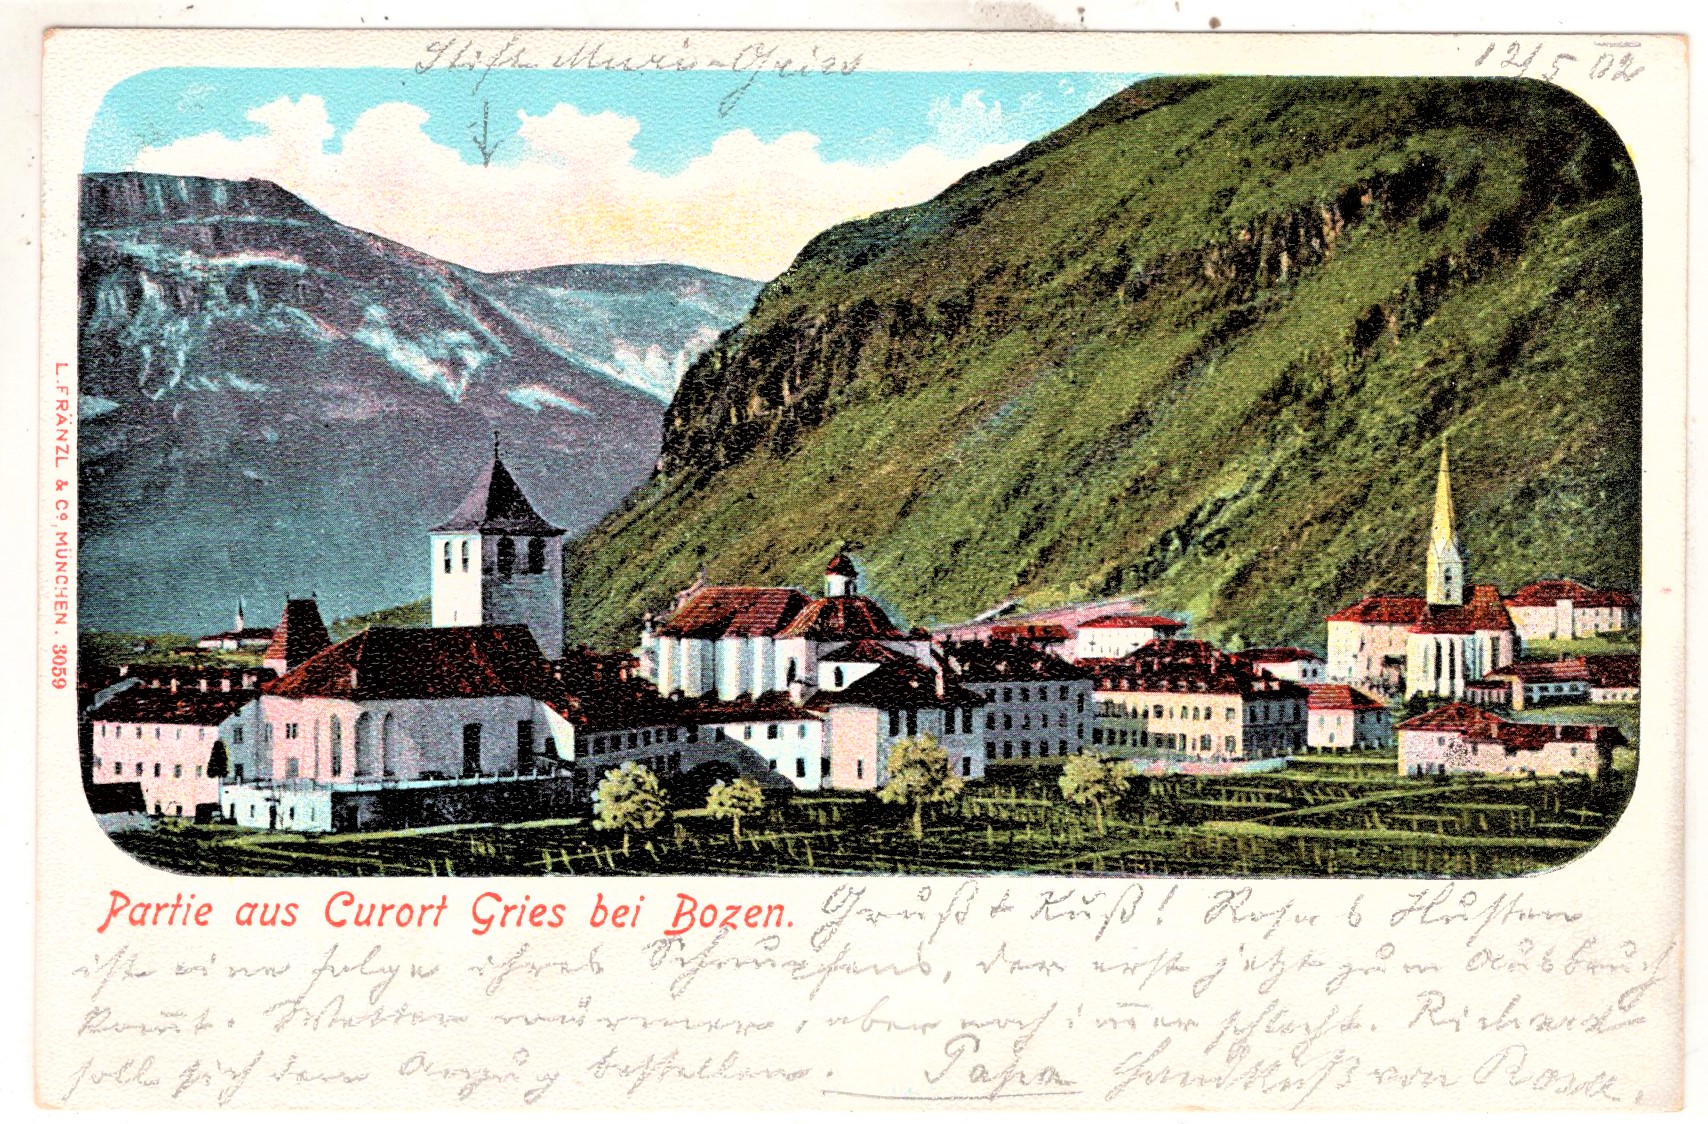 Stift Muri-Gries
12/5 02
L. FRÄNZL & Cº, MÜNCHEN. 3059
Partie aus Curort Gries bei Bozen.
Gruß & Kuß! Rosas Husten
ist eine folge ihres Schnupfens, der erst jetzt zum Ausbruch
kom̅t. Wetter wärmer, aber noch im̅er schlecht. Richard
soll sich den Anzug bestellen. Papa Handkuß von Rosa.